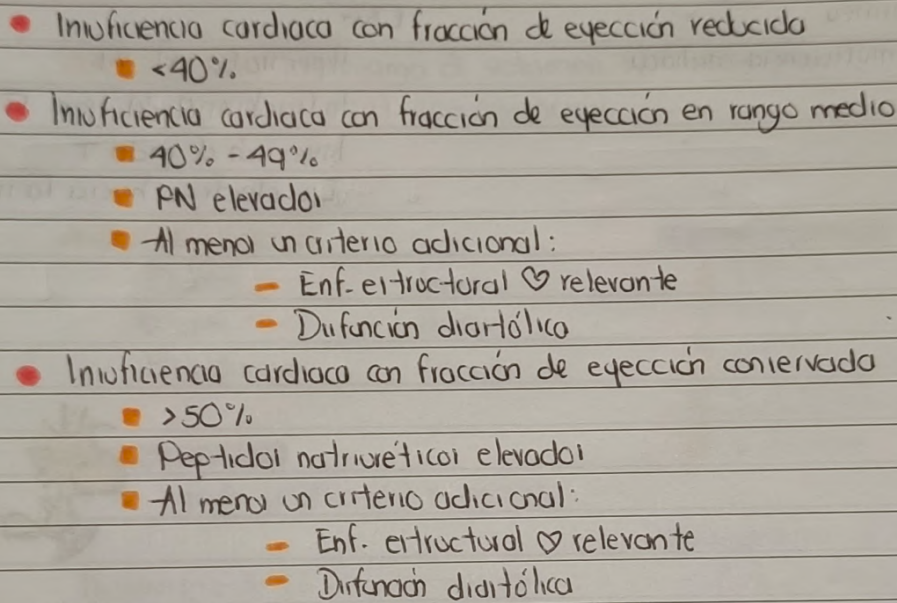 • Insuficiencia cardiaca con fracción de eyección reducida
▪ <40%
• Insuficiencia cardiaca con fracción de eyección en rango medio
▪ 40% - 49%
▪ PN elevados
▪ Al menos un criterio adicional:
- Enf. estructural ♡ relevante
- Disfunción diastólica
• Insuficiencia cardiaca con fracción de eyección conservada
▪ >50%
▪ Peptidos natriuréticos elevados
▪ Al menos un criterio adicional:
- Enf. estructural ♡ relevante
- Disfunción diastólica